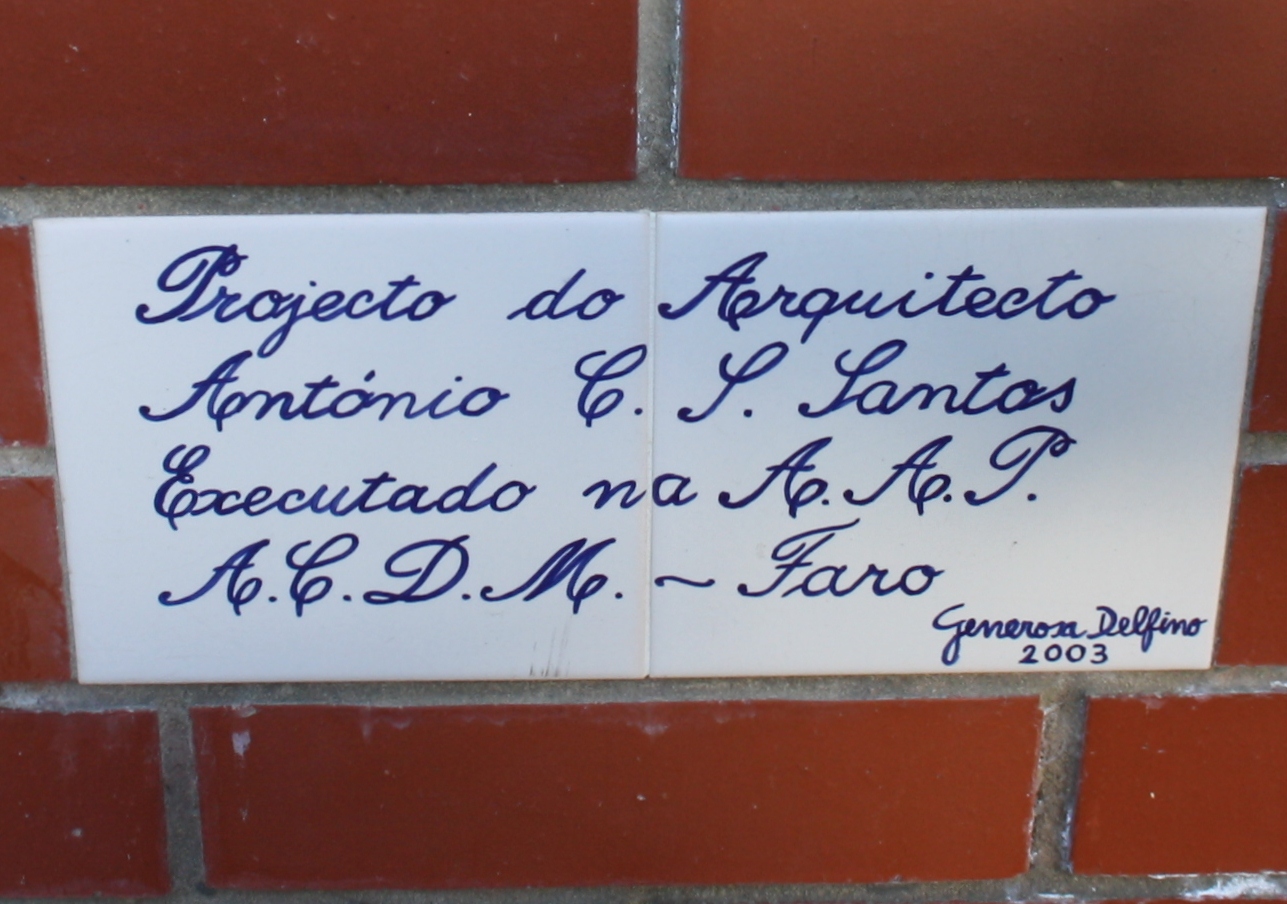 Projecto do Arquitecto
António C. S. Santos
Executado na A. A. P.
A. C. D. M. ~ Faro
Generosa Delfino
2003